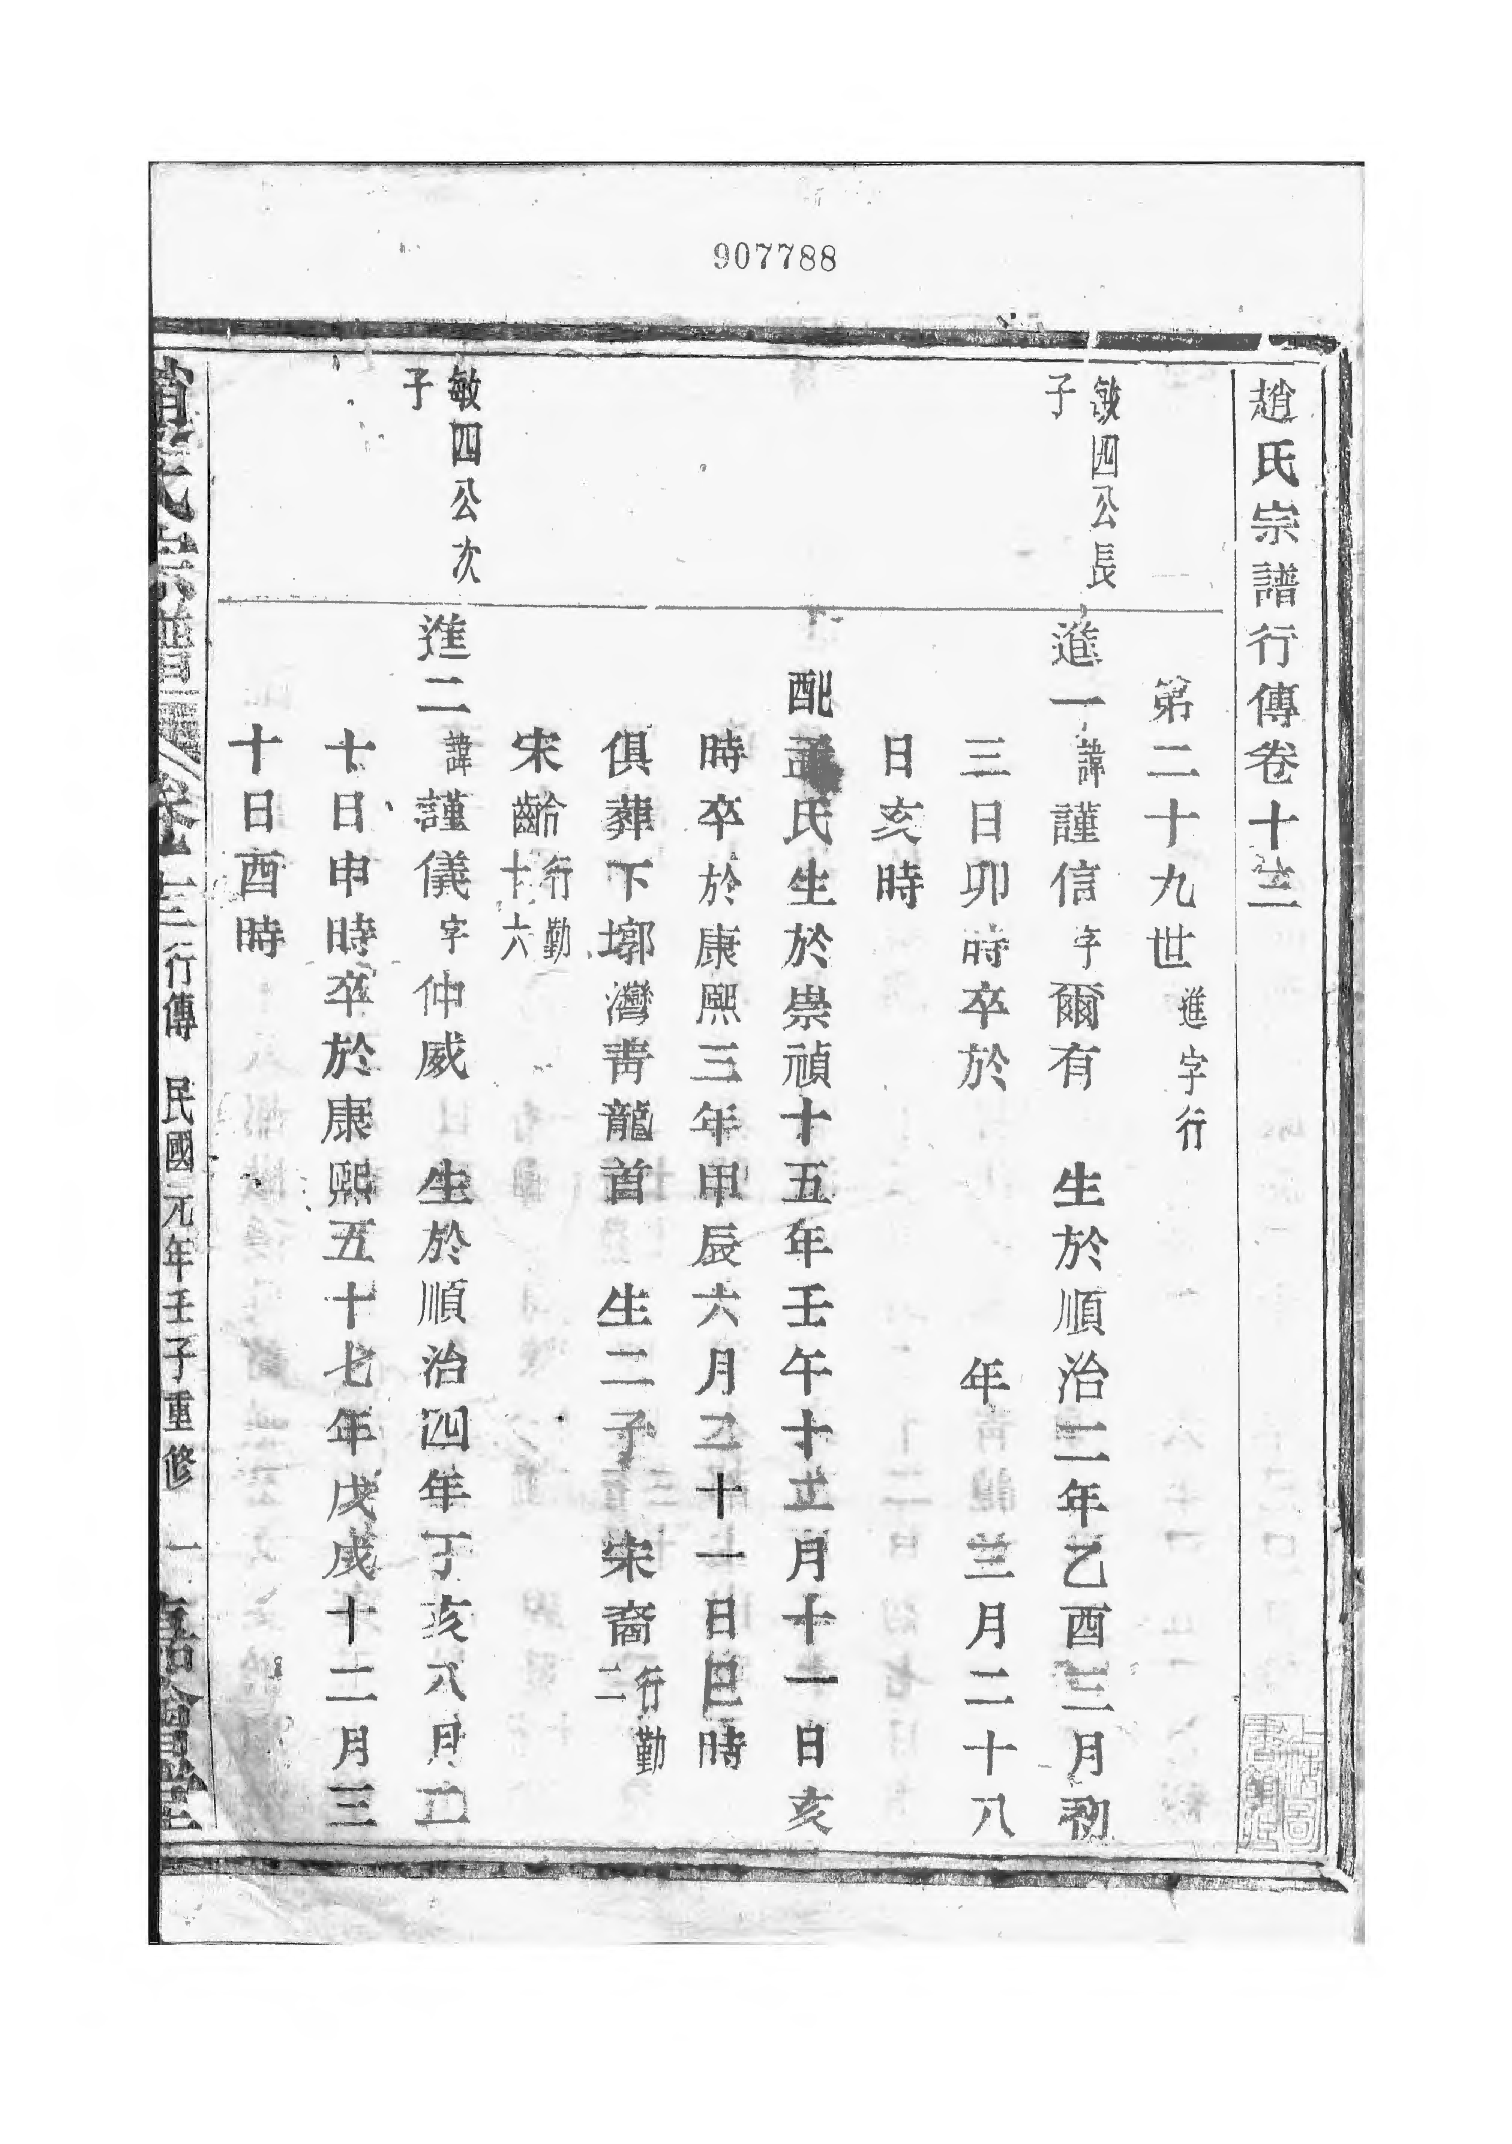 907788
趙氏宗譜行傳卷十三
第二十九世進字行
敏四公長
子
進一諱謹信字爾有 生於順治二年乙酉三月初
三日卯時卒於 年 三月二十八
日亥時
配孟氏生於崇禎十五年壬午十五月十一日亥
時卒於康熙三年甲辰六月二十一日巳時
俱葬下墎灣青龍首 生二子 宋裔行勤二
宋齡行勤十六
敏四公次
子
進二諱謹儀字仲威 生於順治四年丁亥八月二
十日申時卒於康熙五十七年戊戌十二月三
十日酉時
趙氏宗譜 卷十三 行傳 民國元年壬子重修 一